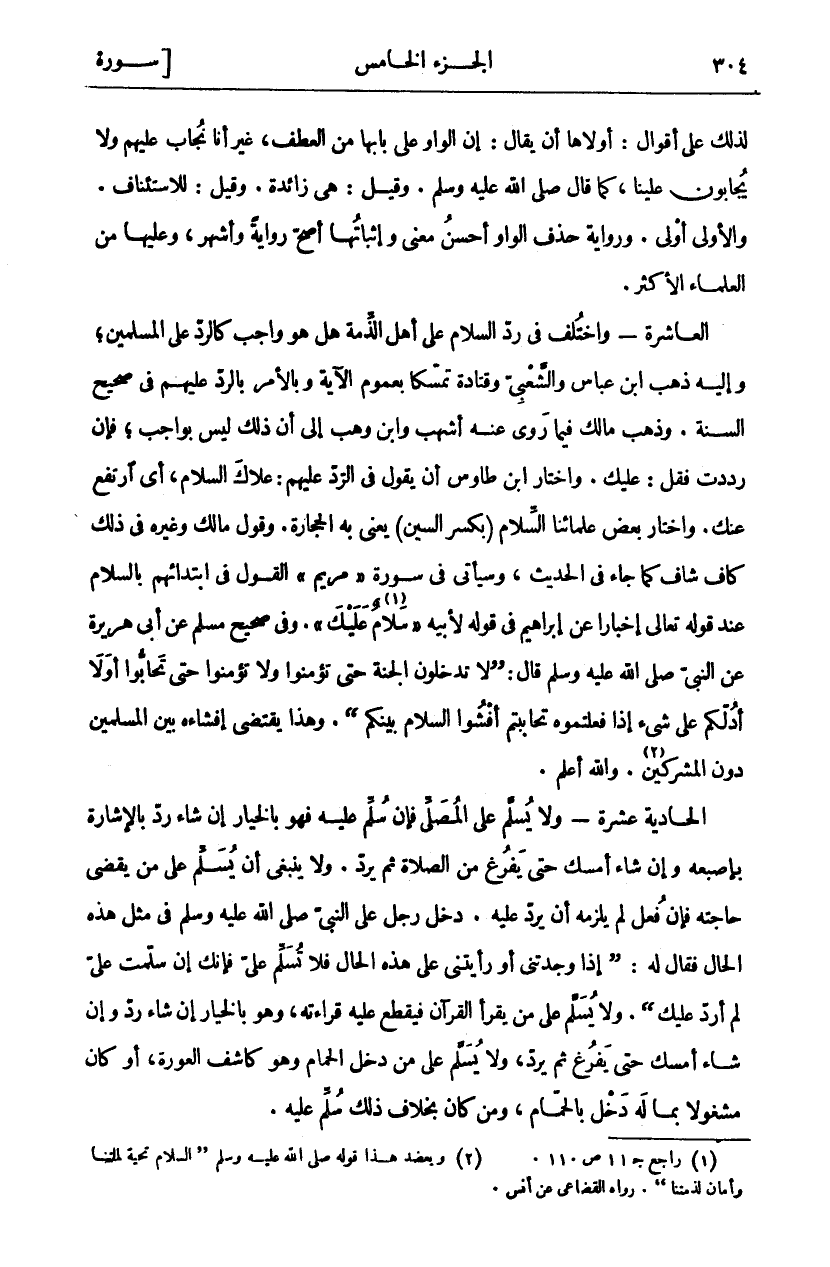 ٣٠٤ الجــزء الخــامس [ســورة
لذلك على أقوال : أولاها أن يقال : إن الواو على بابها من العطف، غير أنا نُجاب عليهم ولا
يُجابون علينا ، كما قال صلى الله عليه وسلم . وقيــل : هى زائدة . وقيل : للاستئناف .
والأولى أوْلى . ورواية حذف الواو أحسنُ معنى و إثباتُهــا أصحّ روايةً وأشهر ، وعليهــا من
العلمــاء الأكثر .
العــاشرة – واختُلف فى ردّ السلام على أهل الذّمة هل هو واجب كالردّ على المسلمين؛
و إليــه ذهب ابن عباس والشَّعْبِىّ وقتادة تمسّكا بعموم الآية و بالأمر بالردّ عليهــم فى صحيح
الســنة . وذهب مالك فيما رَوى عنــه أشهب وابن وهب إلى أن ذلك ليس بواجب ؛ فإن
رددت فقل : عليك . واختار ابن طاوس أن يقول فى الرّد عليهم : علاكَ السلام، أى آرتفع
عنك. واختار بعض علمائنا السِّلام (بكسر السين) يعنى به الحجارة. وقول مالك وغيره فى ذلك
كاف شاف كما جاء فى الحديث ، وسيأتى فى ســورة « مريم » القــول فى ابتدائهم بالسلام
عند قوله تعالى إخبارا عن إبراهيم فى قوله لأبيه «سَلَامٌ عَلَيْكَ(١)» . وفى صحيح مسلم عن أبى هريرة
عن النبىّ صلى الله عليه وسلم قال : ”لا تدخلون الجنة حتى تؤمنوا ولا تؤمنوا حتى تَحَابُّوا أَوَلَا
أدُلّكم على شىء إذا فعلتموه تحاببتم أفْشُوا السلام بينكم“ . وهذا يقتضى إفشاءه بين المسلمين
دون المشركين(٢) . والله أعلم .
الحــادية عشرة – ولا يُسلَّم على المُصَلِّى فإن سُلِّم عليــه فهو بالخيار إن شاء ردّ بالإشارة
بإصبعه و إن شاء أمسك حتى يَفْرُغ من الصلاة ثم يردّ . ولا ينبغى أن يُسَــلَّم على من يقضى
حاجته فإن فُعل لم يلزمه أن يردّ عليه . دخل رجل على النبىّ صلى الله عليه وسلم فى مثل هذه
الحال فقال له : ” إذا وجدتنى أو رأيتنى على هذه الحال فلا تُسَلِّم علىّ فإنك إن سلّمت علىّ
لم أردّ عليك “ . ولا يُسَلَّم على من يقرأ القرآن فيقطع عليه قراءته، وهو بالخيار إن شاء ردّ و إن
شــاء أمسك حتى يَفْرُغ ثم يردّ، ولا يُسَلَّم على من دخل الحمام وهو كاشف العورة، أو كان
مشغولا بمــا لَه دَخْل بالحمّام ، ومن كان بخلاف ذلك سُلِّم عليه .
(١) راجع جـ ١١ ص ١١٠ . (٢) ويعضد هــذا قوله صلى الله عليــه وسلم ” السلام تحية لملتنــا
وأمان لذمتنا “ . رواه القضاعى عن أنس .